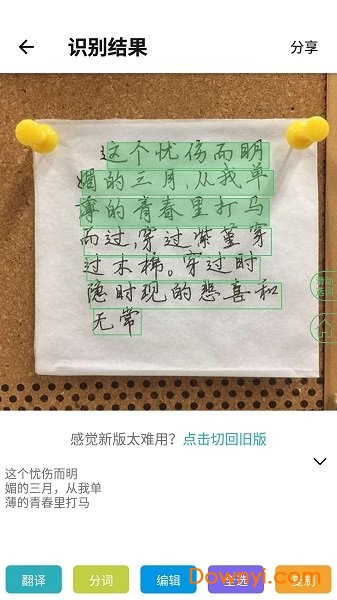 识别结果
分享
这个忧伤而明
媚的三月,从我单
薄的青春里打马
而过,穿过紫堇,穿
过木棉。穿过时
隐时现的悲喜和
无常
滑动
选词
感觉新版太难用？点击切回旧版
这个忧伤而明
媚的三月，从我单
薄的青春里打马
翻译
分词
编辑
全选
复制
Downyi.com